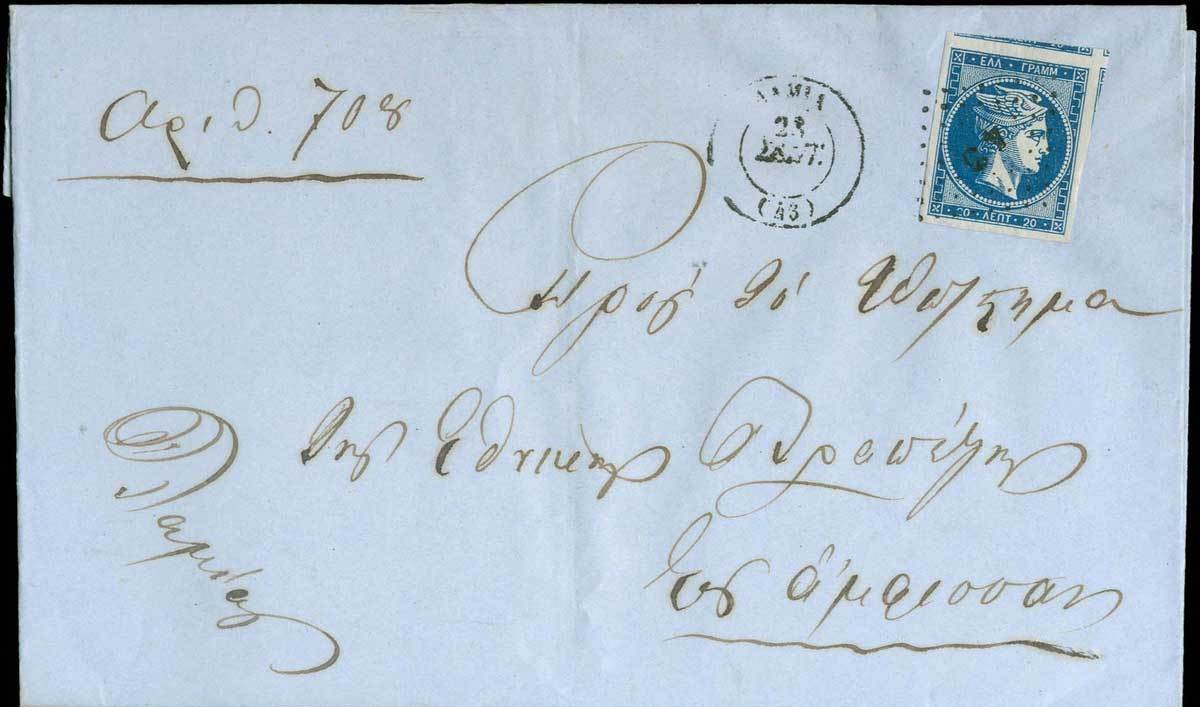 Αριθ. 708
ΛΑΜΙΑ
23
ΣΕΠΤ.
(43)
ΕΛΛ ΓΡΑΜΜ
20 ΛΕΠΤ 20
Προς το Υποκ/τημα
της Εθνικης Τραπέζης
Εις Άμφισσαν
Λαμίας